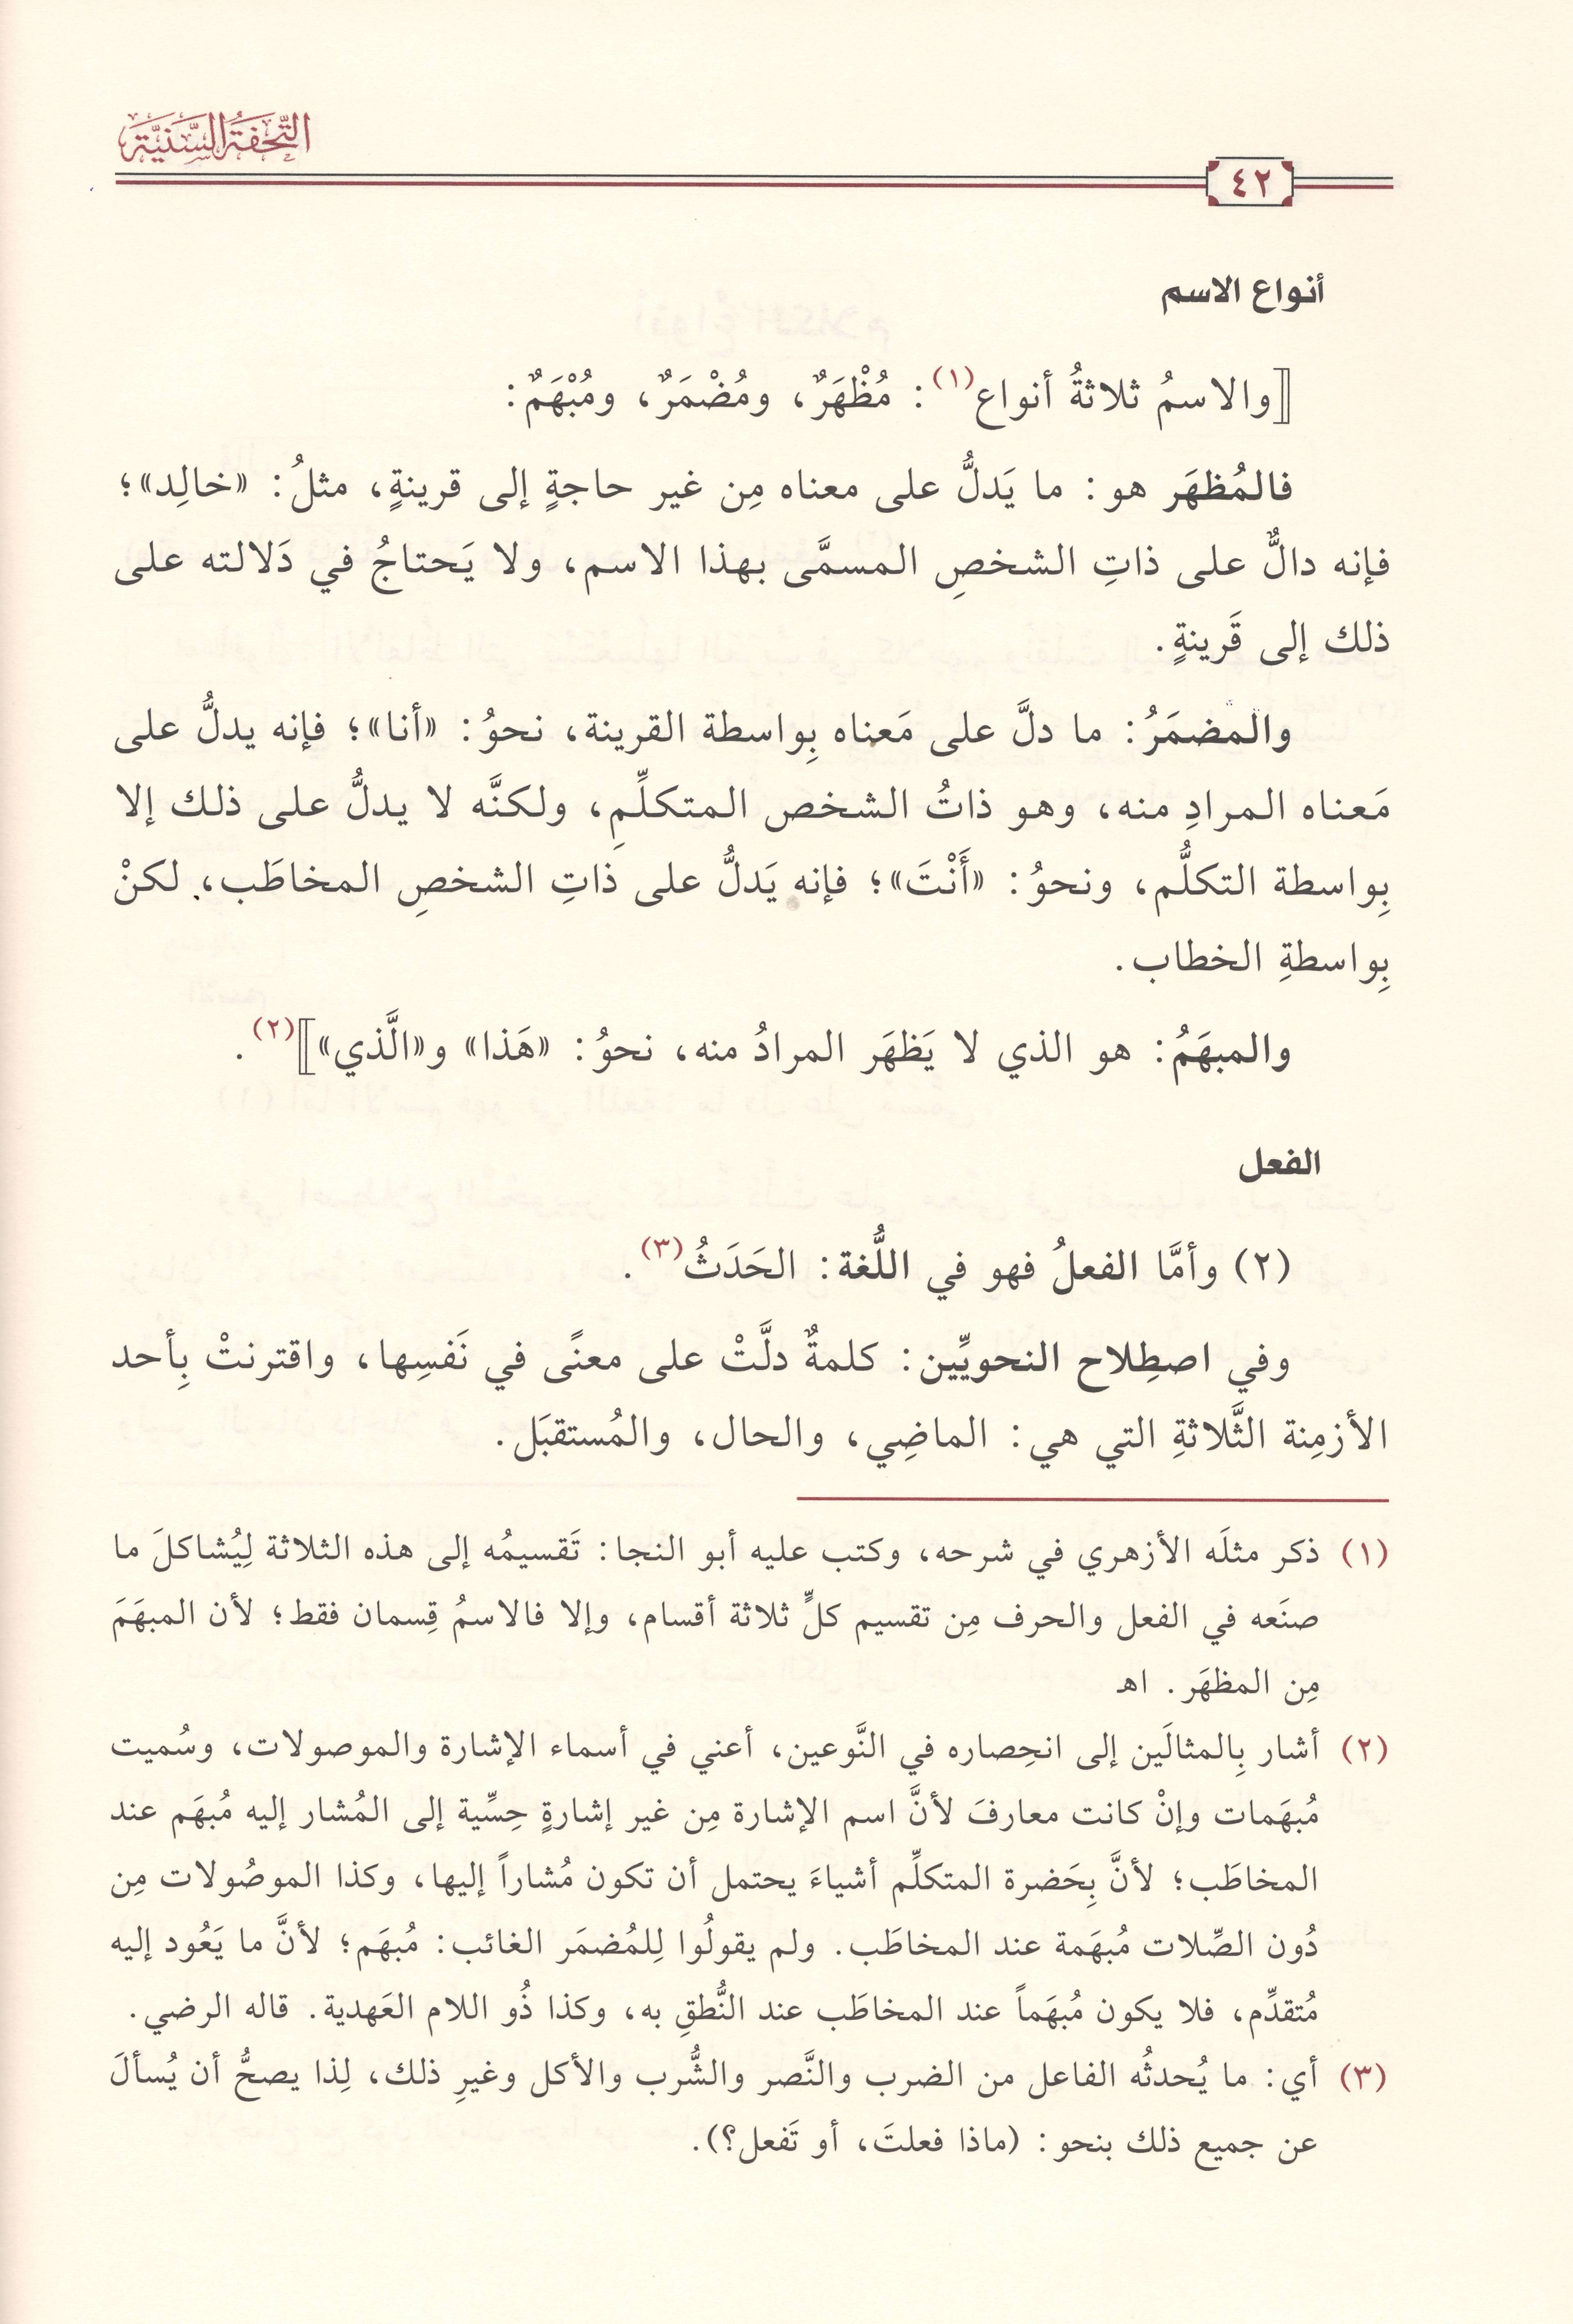 التُّحفَةُ السَّنِيَّة
٤٢
أنواع الاسم
⟦والاسمُ ثلاثةُ أنواع(١): مُظْهَرٌ، ومُضْمَرٌ، ومُبْهَمٌ:
فالمُظهَر هو: ما يَدلُّ على معناه مِن غير حاجةٍ إلى قرينةٍ، مثلُ: «خالِد»؛
فإنه دالٌّ على ذاتِ الشخصِ المسمَّى بهذا الاسم، ولا يَحتاجُ في دَلالته على
ذلك إلى قَرينةٍ.
والمضمَرُ: ما دلَّ على مَعناه بِواسطة القرينة، نحوُ: «أنا»؛ فإنه يدلُّ على
مَعناه المرادِ منه، وهو ذاتُ الشخص المتكلِّمِ، ولكنَّه لا يدلُّ على ذلك إلا
بِواسطة التكلُّم، ونحوُ: «أَنْتَ»؛ فإنه يَدلُّ على ذاتِ الشخصِ المخاطَب، لكنْ
بِواسطةِ الخطاب.
والمبهَمُ: هو الذي لا يَظهَر المرادُ منه، نحوُ: «هَذا» و«الَّذي»⟧(٢).
الفعل
(٢) وأمَّا الفعلُ فهو في اللُّغة: الحَدَثُ(٣).
وفي اصطِلاح النحويِّين: كلمةٌ دلَّتْ على معنًى في نَفسِها، واقترنتْ بِأحد
الأزمِنة الثَّلاثةِ التي هي: الماضِي، والحال، والمُستقبَل.
(١) ذكر مثلَه الأزهري في شرحه، وكتب عليه أبو النجا: تَقسيمُه إلى هذه الثلاثة لِيُشاكلَ ما
صنَعه في الفعل والحرف مِن تقسيم كلٍّ ثلاثة أقسام، وإلا فالاسمُ قِسمان فقط؛ لأن المبهَمَ
مِن المظهَر. اهـ
(٢) أشار بِالمثالَين إلى انحِصاره في النَّوعين، أعني في أسماء الإشارة والموصولات، وسُميت
مُبهَمات وإنْ كانت معارفَ لأنَّ اسم الإشارة مِن غير إشارةٍ حِسِّية إلى المُشار إليه مُبهَم عند
المخاطَب؛ لأنَّ بِحَضرة المتكلِّم أشياءَ يحتمل أن تكون مُشاراً إليها، وكذا الموصُولات مِن
دُون الصِّلات مُبهَمة عند المخاطَب. ولم يقولُوا لِلمُضمَر الغائب: مُبهَم؛ لأنَّ ما يَعُود إليه
مُتقدِّم، فلا يكون مُبهَماً عند المخاطَب عند النُّطقِ به، وكذا ذُو اللام العَهدية. قاله الرضي.
(٣) أي: ما يُحدثُه الفاعل من الضرب والنَّصر والشُّرب والأكل وغيرِ ذلك، لِذا يصحُّ أن يُسألَ
عن جميع ذلك بنحو: (ماذا فعلتَ، أو تَفعل؟).